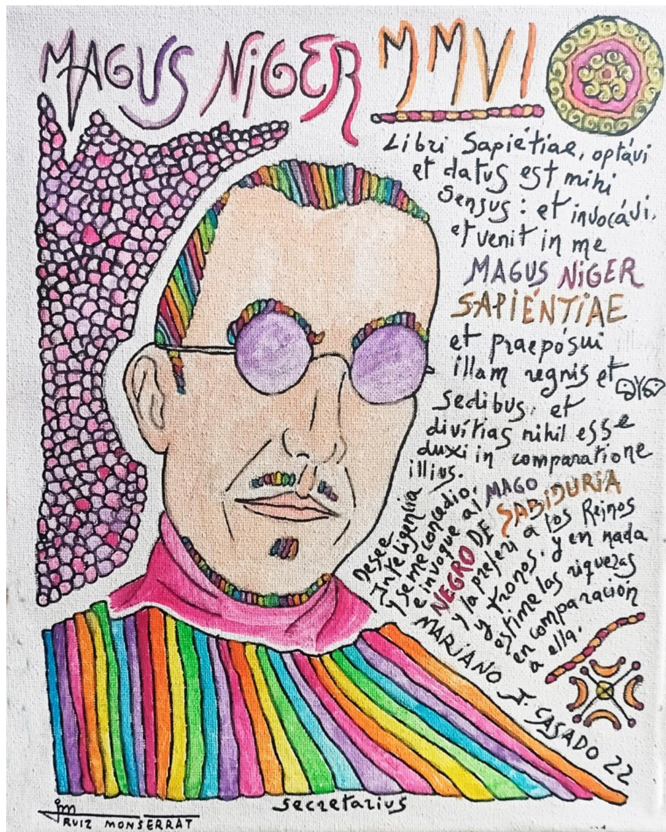 MAGUS NiGER MMVI
Libri Sapiétiae, optávi
et datus est mihi
Sensus : et invocávi,
et venit in me
MAGUS NiGER
SAPIÉNTIAE
et praepósui
illam regnis et
sedibus, et
divítias nihil esse
duxi in comparatione
illíus.
Desee
Inteligencia
y se me concedio,
e invoque al MAGO
NEGRO DE SABiDURIA
y la preferi a los Reinos
y tronos. y en nada
estime las riquezas
en comparación
a ella.
MARiANO J. CASADO 22
secretarius
jm
RUIZ MONSERRAT